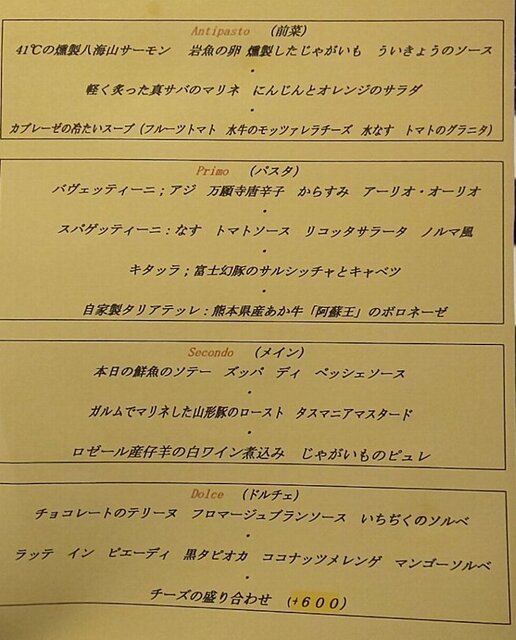 Antipasto (前菜)
41℃の燻製八海山サーモン 岩魚の卵 燻製したじゃがいも ういきょうのソース
・
軽く炙った真サバのマリネ にんじんとオレンジのサラダ
・
カプレーゼの冷たいスープ(フルーツトマト 水牛のモッツァレラチーズ 水なす トマトのグラニタ)
Primo (パスタ)
バヴェッティーニ;アジ 万願寺唐辛子 からすみ アーリオ・オーリオ
・
スパゲッティーニ:なす トマトソース リコッタサラータ ノルマ風
・
キタッラ;富士幻豚のサルシッチャとキャベツ
・
自家製タリアテッレ:熊本県産あか牛「阿蘇王」のボロネーゼ
Secondo (メイン)
本日の鮮魚のソテー ズッパ ディ ペッシェソース
・
ガルムでマリネした山形豚のロースト タスマニアマスタード
・
ロゼール産仔羊の白ワイン煮込み じゃがいものピュレ
Dolce (ドルチェ)
チョコレートのテリーヌ フロマージュブランソース いちぢくのソルベ
・
ラッテ イン ピエーディ 黒タピオカ ココナッツメレンゲ マンゴーソルベ
・
チーズの盛り合わせ (+600)